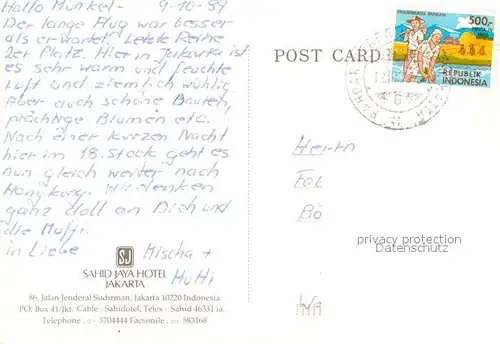 Hallo Munkel - 9-10-89
Der lange Flug war besser
als erwartet! Letzte Reihe
2er Platz. Hier in Jakarta ist
es sehr warm und feuchte
Luft und ziemlich wühlig
Aber auch schöne Bauten,
prächtige Blumen etc.
Nach einer kurzen Nacht
hier im 18. Stock geht es
nun gleich weiter nach
Hongkong. Wir denken
ganz doll an Dich und
die Muffi.
in Liebe Mischa +
Mutti
SJ
SAHID JAYA HOTEL
JAKARTA
86, Jalan Jenderal Sudirman, Jakarta 10220 Indonesia
PO. Box 41/Jkt. Cable: Sahidotel, Telex: Sahid 46331 ia.
Telephone, 5704444 Facsimile: 583168
POST CARD
500,-
REPUBLIK
INDONESIA
Herrn
privacy protection
Datenschutz